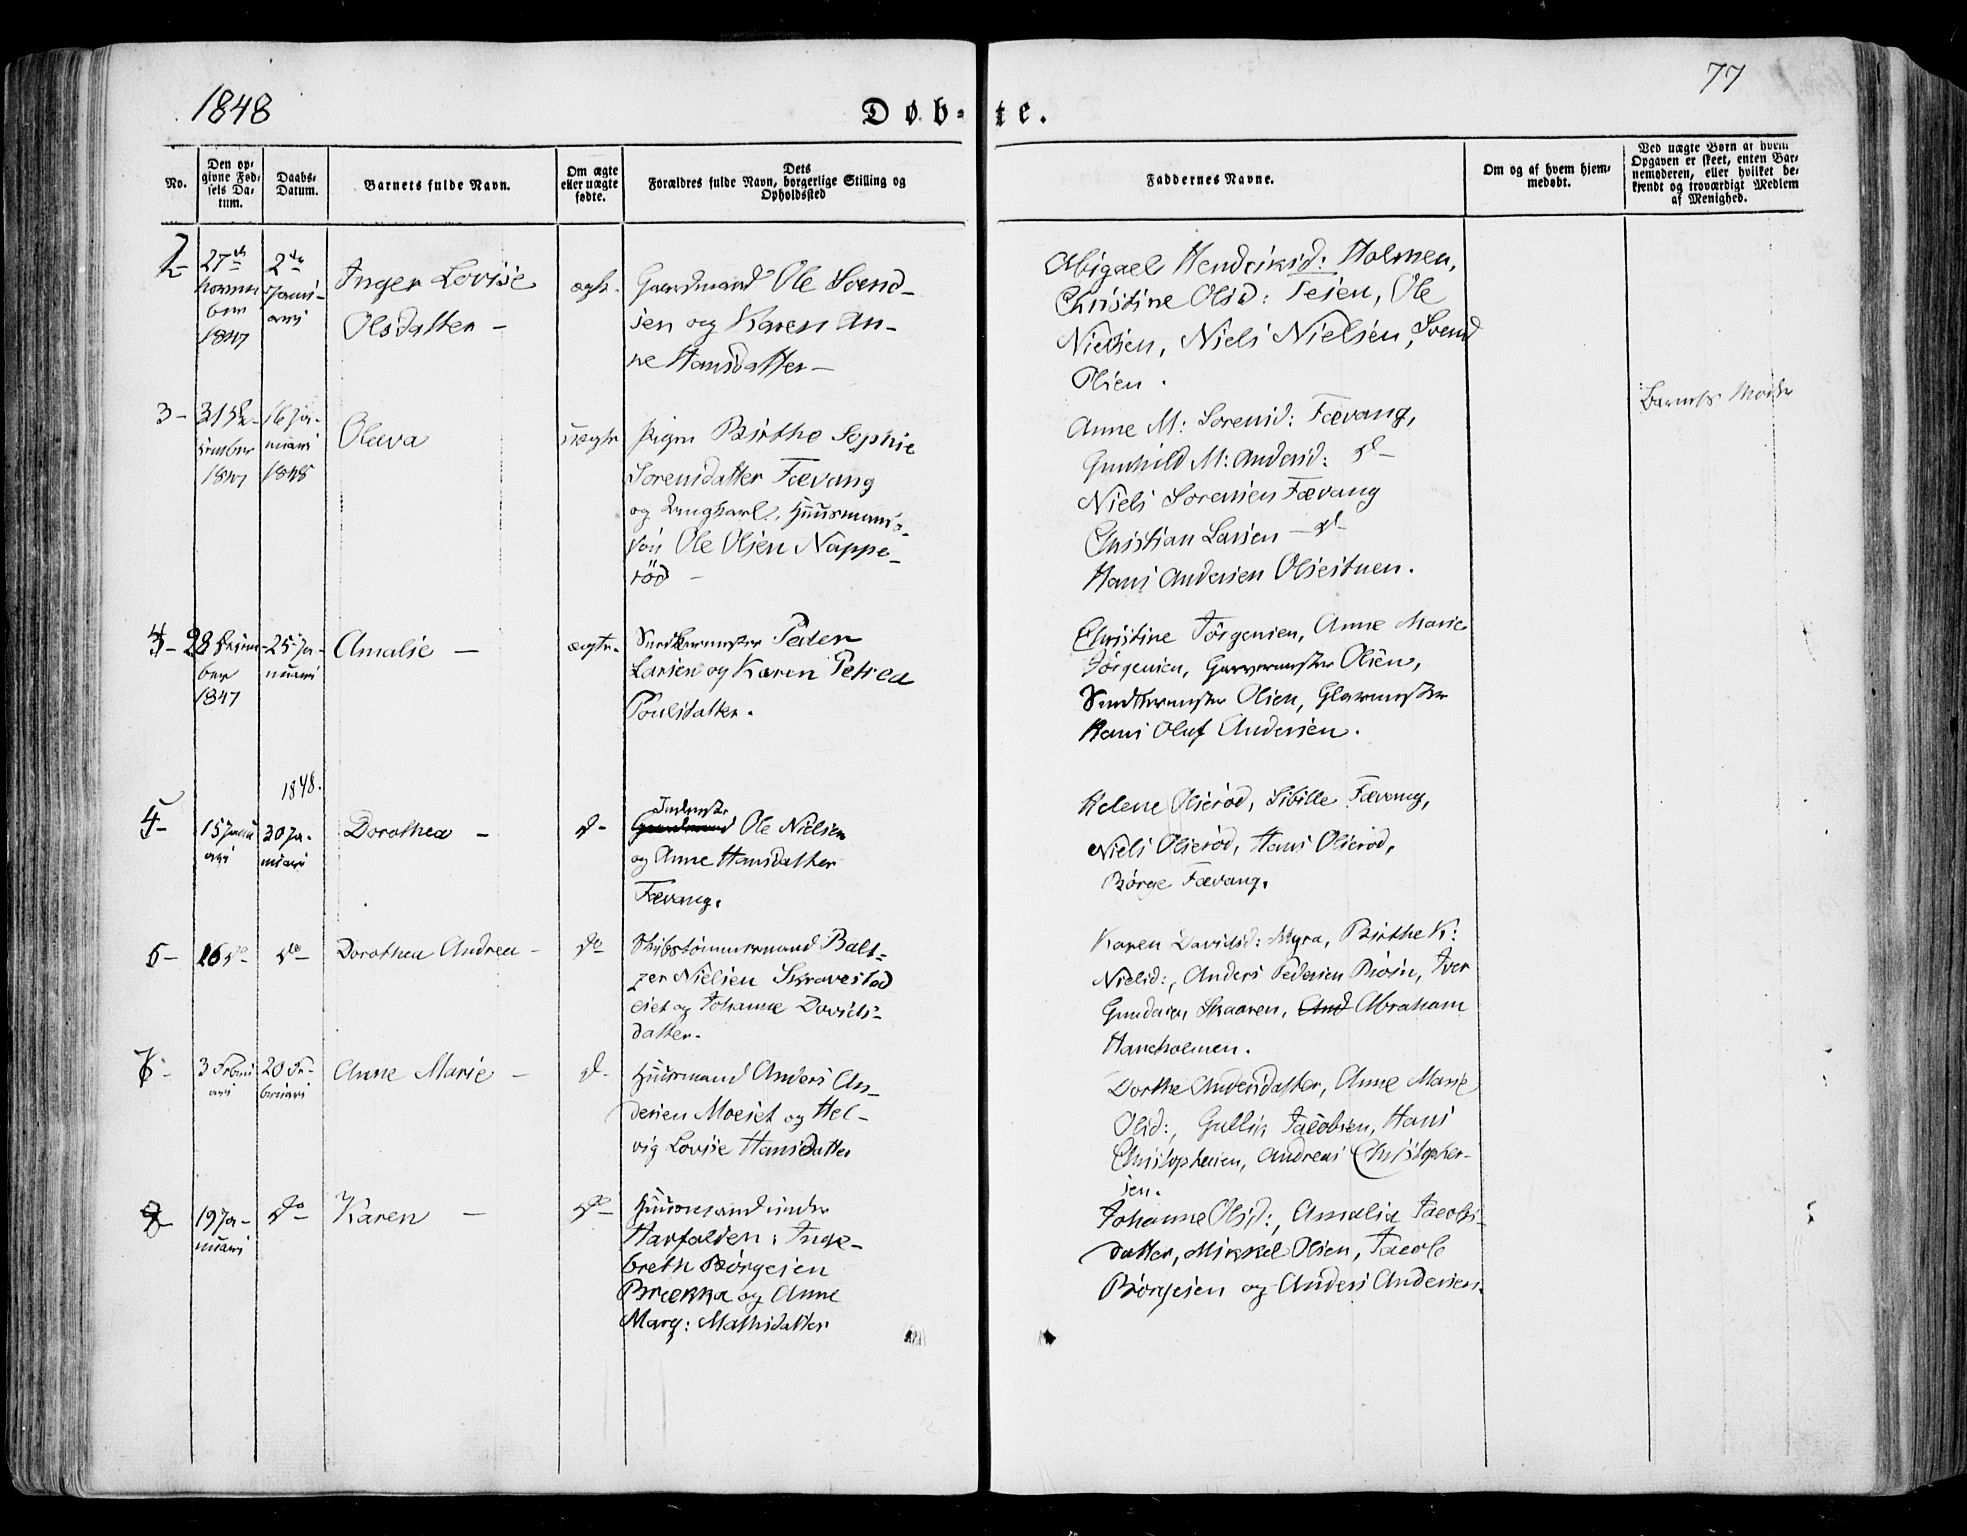 1848
77
Døb-te.
No.
Den op-
givne Fød-
sels Da-
tum.
Daabs-
Datum.
Barnets fulde Navn.
Om ægte
eller uægte
fødte.
Dets
Forældres fulde Navn, borgerlige Stilling og
Opholdssted
Faddernes Navne.
Om og af hvem hjem-
medøbt.
Ved uægte Børn af hvem
Opgaven er skeet, enten Bar-
nemoderen, eller hvilket be-
kjendt og troværdigt Medlem
af Menighed.
2
27de
Novem
ber
1847
2den
Janu-
ari
Inger Lovise
Olsdatter -
ægte.
Gaardmand Ole Svend-
sen og Karen An-
ne Hansdatter -
Abigael Hendriksd: Holmen,
Christine Olsd: Teien, Ole
Nielsen, Niels Nielsen, Svend
Olsen.
3-
31 De-
cember
1847
16 Ja-
nuari
1848
Oleva
uægte
Pigen Birthe Sophie
Sorensdatter Fævang
og Ungkarl, Huusmands-
søn Ole Olsen Nappe-
röd -
Anne M: Sorensd: Fævang,
Gunhild M: Andersd: do -
Niels Sorensen Fævang
Christian Larsen - do -
Hans Andersen Olsestuen.
Barnets Moder
4-
28 Decem-
ber
1847
25 Ja-
nuari
Amalie -
ægte.
Snedkermester Peder
Larsen og Karen Petrea
Poulsdatter.
Christine Jörgensen, Anne Marie
Jörgensen, Garvermester Olsen,
Snedkermester Olsen, Glarmester
Hans Oluf Andersen.
1848.
5-
15 Janu
ari
30 Ja-
nuari
Dorothea -
do-
Inderste
Gaardmand Ole Nielsen
og Anne Hansdatter
Fævang.
Helene Olseröd, Sibille Fævang,
Niels Olseröd, Hans Olseröd,
Börge Fævang.
6-
16 do-
do-
Dorothea Andrea -
do
Skibstömmermand Balt-
zer Nielsen Skravestad
eiet og Johanne Davids-
datter.
Karen Davidsd: Myra, Birthe K:
Nielsd:, Anders Pedersen, Iver
Gundersen Skaaren, And Abraham
Haneholmen.
7-
3 Febru
ari
20 Fe-
bruari
Anne Marie -
do-
Huusmand Anders An-
dersen Moeiet og Hel-
vig Lovise Hansdatter
Dorthe Andersdatter, Anne Marie
Olsd:, Gullik Jacobsen, Hans
Christophersen, Andreas Christopher-
sen.
8-
19 Ja-
nuari
do-
Karen -
do-
Huusmand under
Harfalden: Inge-
breth Börgesen
Brække og Anne
Marg: Mathisdatter
Johanne Olsd:, Amalia Jacobs-
datter, Mikkel Olsen, Jacob
Börgesen og Anders Andersen.